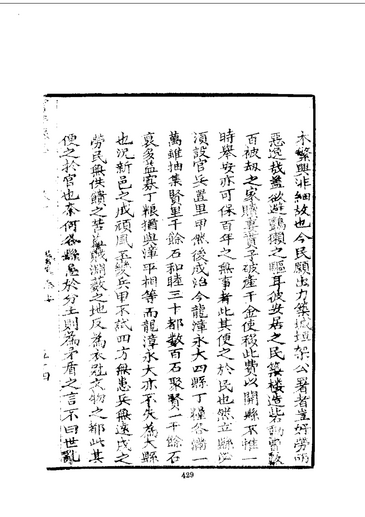 木繁興非細故也今民願出力築城垣架公署者豈好勞而
惡逸哉蓋欲避鸇獺之驅耳彼安居之民築樓造砦動費數
百被劫之家贖妻賣子破產千金使移此費以開縣不惟一
時舉安亦可保百年之無事者此其便之於民也然立縣必
須設官兵置里甲然後成治今龍漳永大四縣丁糧各滿一
萬雖抽集賢里千餘石和睦三十都數百石聚賢八千餘石
裒多益寡丁糧猶與漳平相等而龍漳永大亦不失為大縣
也況新邑之成頑風丕變兵甲不試四方無患兵無遠戍之
勞民無供饋之苦盜賊淵藪之地反為衣冠文物之都此其
便之於官也奈何各縣急於分土則為矛盾之言不曰世亂
429